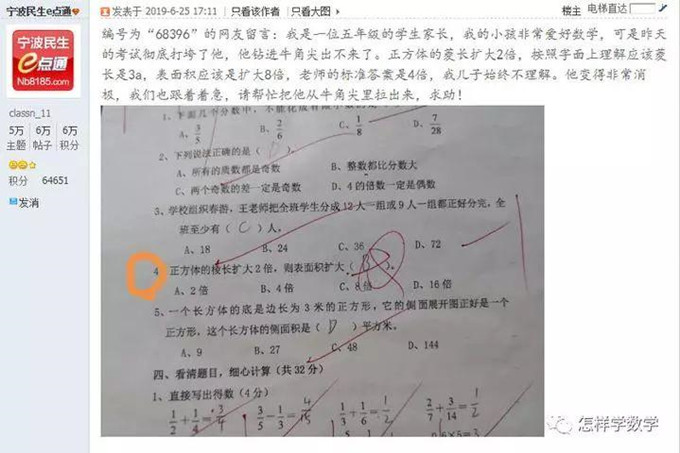 宁波民生e点通
发表于 2019-6-25 17:11 | 只看该作者 | 只看大图
楼主 电梯直达
宁波民生
e点通
Nb8185.com
classn_11
5万 6万 6万
主题 帖子 积分
积分 64651
发消
编号为“68396”的网友留言：我是一位五年级的学生家长，我的小孩非常爱好数学，可是昨天
的考试彻底打垮了他，他钻进牛角尖出不来了。正方体的菱长扩大2倍，按照字面上理解应该菱
长是3a，表面积应该是扩大8倍，老师的标准答案是4倍，我儿子始终不理解。他变得非常消
极，我们也跟着着急，请帮忙把他从牛角尖里拉出来，求助！
1、下面几个分数中，不能化成有限小数的是
A、3/5 B、2/6 C、1/8 D、7/28
2、下列说法正确的是（ ）。
A、所有的质数都是奇数 B、整数都比分数大
C、两个奇数的差一定是奇数 D、4的倍数一定是偶数
3、学校组织春游，王老师把全班学生分成12人一组或9人一组都正好分完，全
班至少有（ C ）人。
A、18 B、24 C、36 D、72
4、正方体的棱长扩大2倍，则表面积扩大（ ）。
A、2倍 B、4倍 C、8倍 D、16倍
5、一个长方体的底是边长为3米的正方形，它的侧面展开图正好是一个
正方形，这个长方体的侧面积是（ D ）平方米。
A、9 B、27 C、48 D、144
四、看清题目，细心计算（共32分）
1、直接写出得数（4分）
1/2+1/4=3/4 3/5-1/3=4/15 1/3+1/6=1/2 2/7+3/14=1/2
怎样学数学